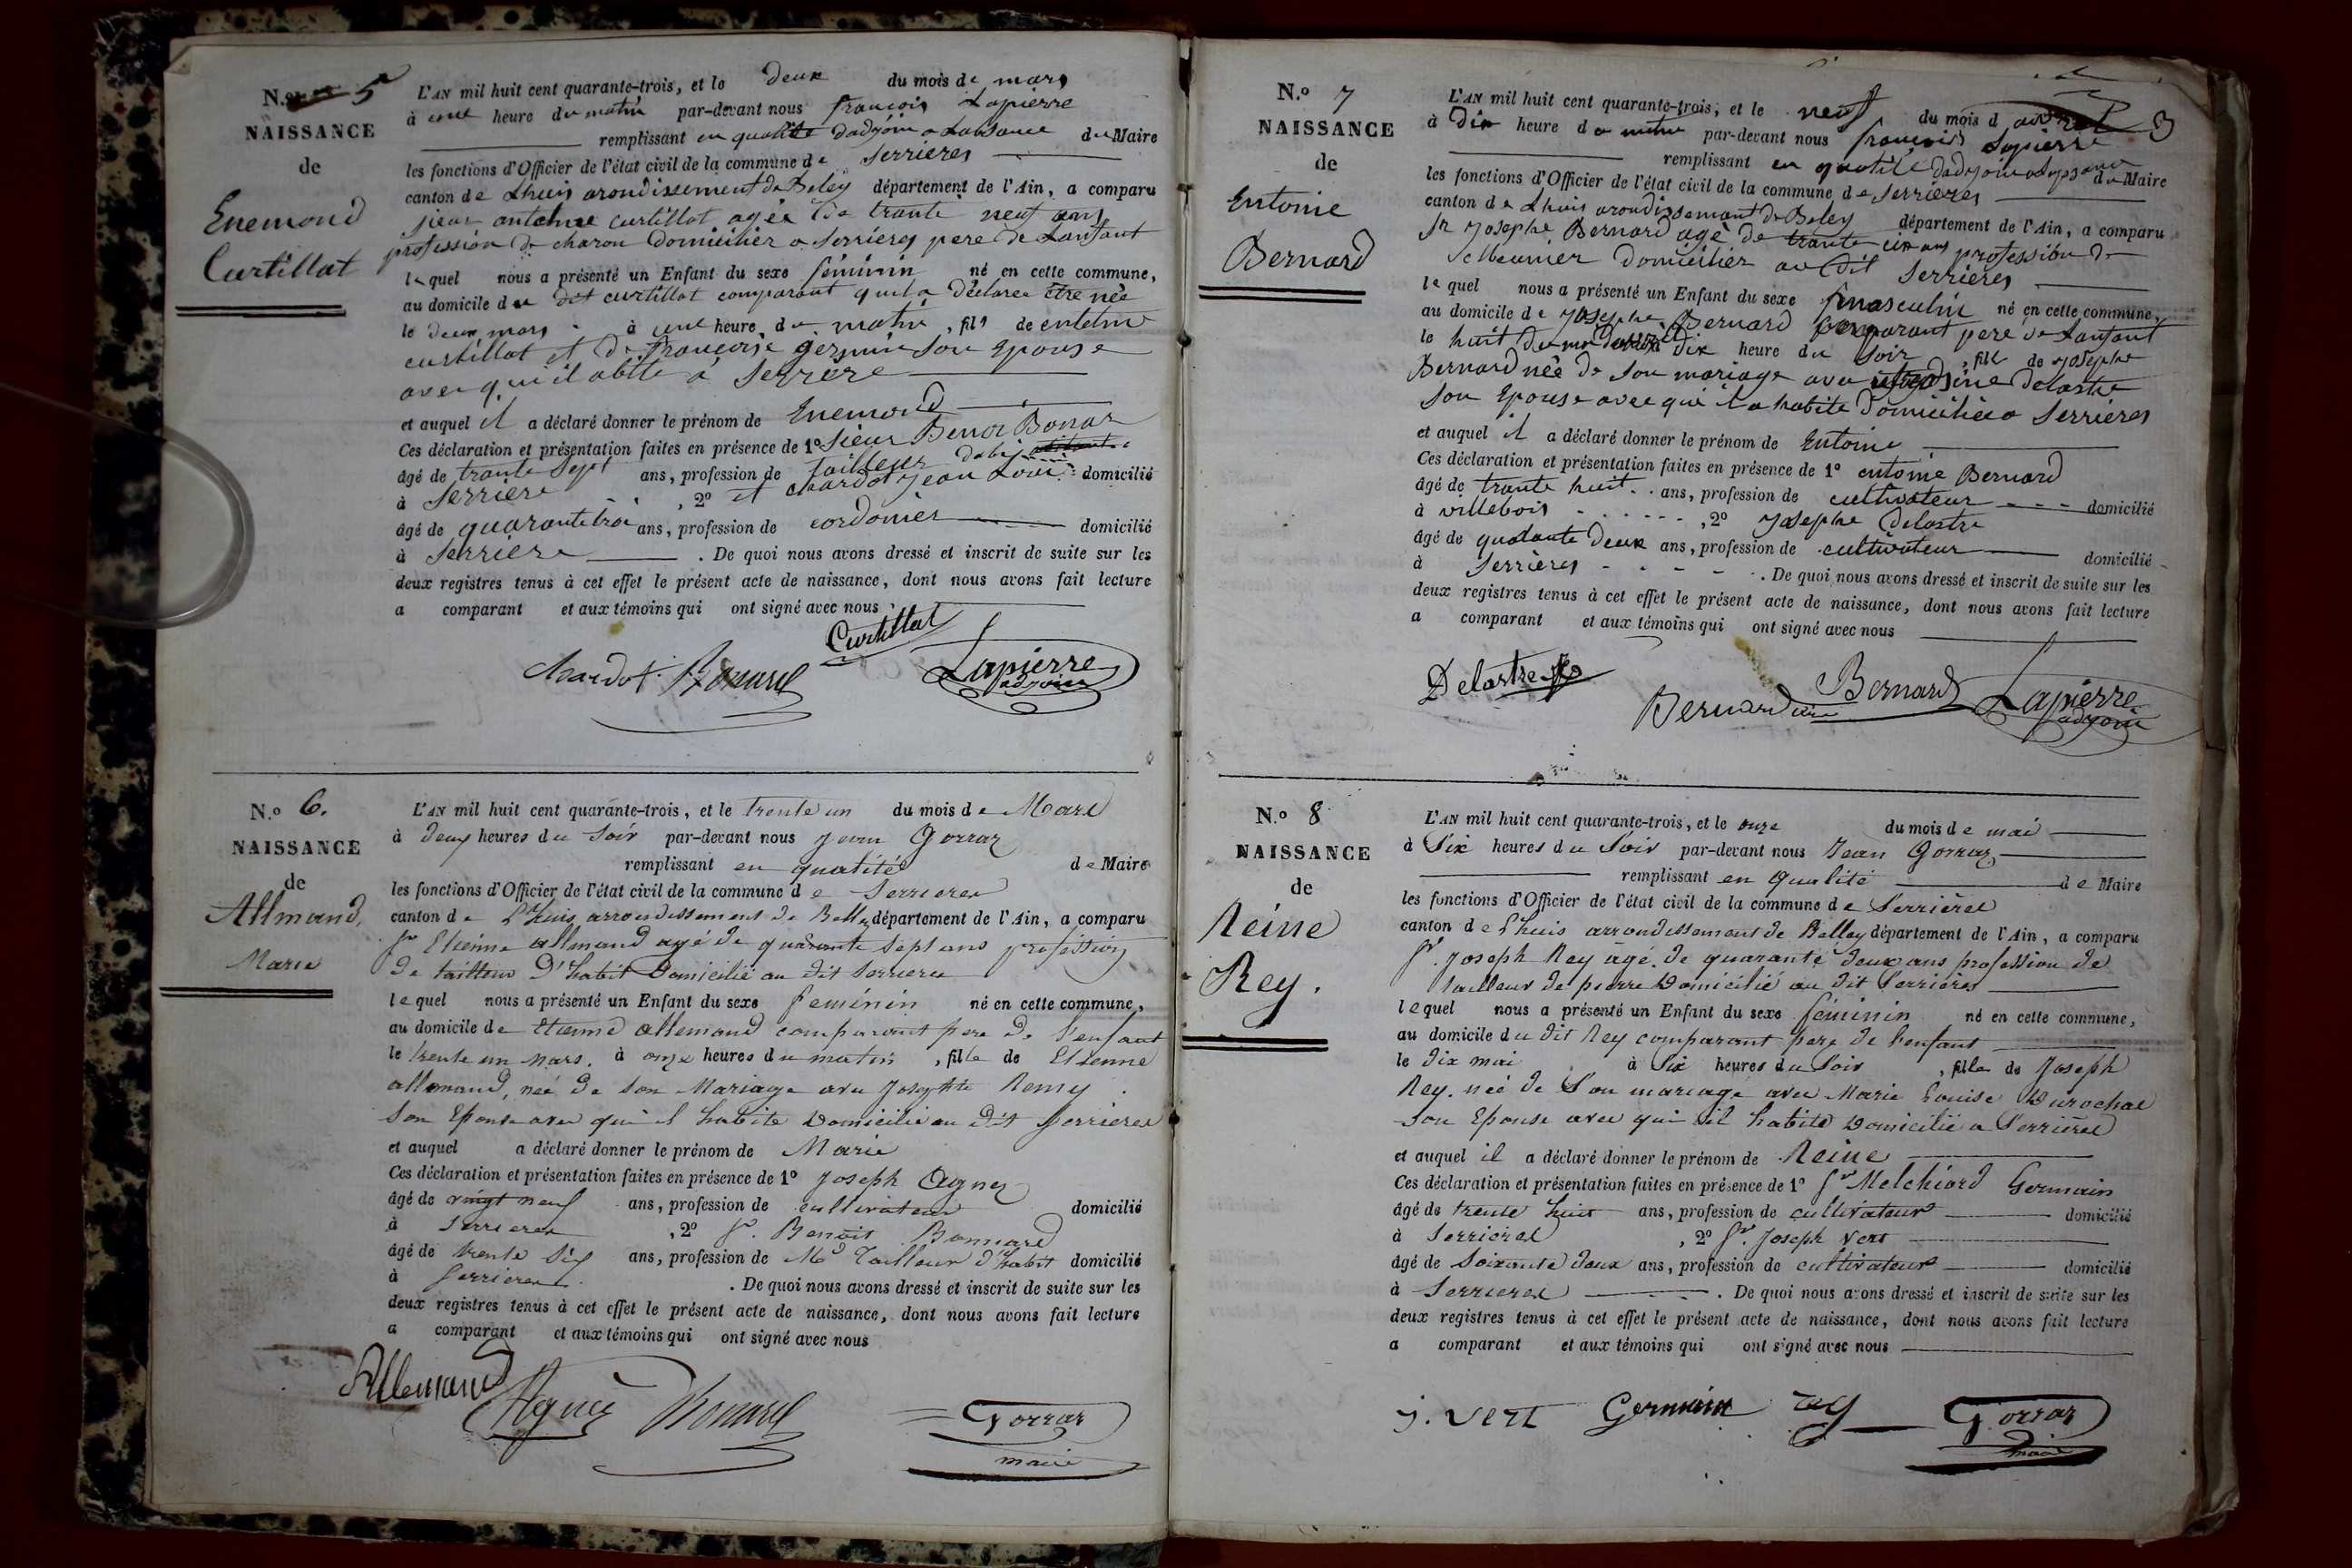 N.º 5
NAISSANCE
de
Enemond
Curtillat
L'AN mil huit cent quarante-trois, et le deux du mois de mars
à une heure du matin par-devant nous françois Lapierre
remplissant en qualité dadjoin a Labsance du Maire
les fonctions d'Officier de l'état civil de la commune de Serrieres
canton de Lhuis arondissement de Beley département de l'Ain, a comparu
sieur antoine curtillat agée de trante neuf ans
profession de charon domicilier a Serrieres pere de Lanfant
lequel nous a présenté un Enfant du sexe féminin né en cette commune,
au domicile du dit curtillat comparant quil a déclaree être née
le deux mars à une heure du matin, fils de entoine
curtillat et de françoise germain son Epouse
avec qui il abite a Serriere
et auquel il a déclaré donner le prénom de Enemond
Ces déclaration et présentation faites en présence de 1º Sieur Benoi Bonar
âgé de trante sept ans, profession de tailleur dabi
à Serriere, 2º et chardot jean Loui domicilié
âgé de quarante troi ans, profession de cordonier domicilié
à Serriere. De quoi nous avons dressé et inscrit de suite sur les
deux registres tenus à cet effet le présent acte de naissance, dont nous avons fait lecture
a comparant et aux témoins qui ont signé avec nous
Curtillat
Chardot Bonard Lapierre
adjoin
N.º 6.
NAISSANCE
de
Allmand,
Marie
L'AN mil huit cent quarante-trois, et le trente un du mois de Mars
à deux heures du Soir par-devant nous jean Gorraz
remplissant en quatité de Maire
les fonctions d'Officier de l'état civil de la commune de Serrieres
canton de L'huis arrondissement de Belley département de l'Ain, a comparu
Sr Etienne allmand agé de quarante sept ans profession
de tailleur d'habit domicilié au dit Serrieres
lequel nous a présenté un Enfant du sexe feminin né en cette commune,
au domicile de etienne allemand comparant pere de l'enfant
le trente un Mars. à onze heures du matin, fille de Etienne
allemand, neé de son Mariage avec Josephte Remy
son Epouse avec qui il habite domicilié au dit Serrieres
et auquel a déclaré donner le prénom de Marie
Ces déclaration et présentation faites en présence de 1º joseph Agnez
âgé de vingt neuf ans, profession de cultivateur domicilié
à Serrieres, 2º Sr. Benoit Bonnard
âgé de trente six ans, profession de Md Tailleur d'habit domicilié
à Serrieres. De quoi nous avons dressé et inscrit de suite sur les
deux registres tenus à cet effet le présent acte de naissance, dont nous avons fait lecture
a comparant et aux témoins qui ont signé avec nous
Allemand Agnez Bonard Gorraz
maire
3
N.º 7
NAISSANCE
de
Entoine
Bernard
L'AN mil huit cent quarante-trois, et le neuf du mois d avril
à dix heure du matin par-devant nous françois Lapierre
remplissant en qualité dadjoin du Maire
les fonctions d'Officier de l'état civil de la commune de Serrieres
canton de Lhuis arondissement de Beley département de l'Ain, a comparu
Sr Josephe Bernard agé de trante six ans profession de
Meunier domicilier au dit Serrieres
lequel nous a présenté un Enfant du sexe masculin né en cette commune,
au domicile de Josephe Bernard comparant pere de Lanfant
le huit du dix heure du Soir, fils de josephe
Bernard née de Son mariage avec Delastre
Son Epouse avec qui il a habite Domiciliée a Serrieres
et auquel il a déclaré donner le prénom de Entoine
Ces déclaration et présentation faites en présence de 1º entoine Bernard
âgé de trante huit ans, profession de cultivateur domicilié
à villebois, 2º Josephe Delastre
âgé de quatante deux ans, profession de cultivateur domicilié
à Serrieres. De quoi nous avons dressé et inscrit de suite sur les
deux registres tenus à cet effet le présent acte de naissance, dont nous avons fait lecture
a comparant et aux témoins qui ont signé avec nous
Delastre Bernard Bernard Lapierre
adjoin
N.º 8
NAISSANCE
de
Reine
Rey.
L'AN mil huit cent quarante-trois, et le onze du mois de mai
à Six heures du Soir par-devant nous Jean Gorraz
remplissant en qualité de Maire
les fonctions d'Officier de l'état civil de la commune de Serrières
canton de Lhuis arrondissement de Belley département de l'Ain, a comparu
Sr. joseph Rey âgé de quarante deux ans profession de
tailleur de pierre domicilié au dit Serrières
lequel nous a présenté un Enfant du sexe féminin né en cette commune,
au domicile du dit Rey comparant pere de l'enfant
le dix mai à Six heures du Soir, fille de Joseph
Rey. neé de Son mariage avec Marie Louise Durochat
son Epouse avec qui il habite domicilié a Serrières
et auquel il a déclaré donner le prénom de Reine
Ces déclaration et présentation faites en présence de 1º Sr Melchiord Germain
âgé de trente huit ans, profession de cultivateur domicilié
à Serrieres, 2º Sr. Joseph Vert
âgé de Soixante deux ans, profession de cultivateur domicilié
à Serrieres. De quoi nous avons dressé et inscrit de suite sur les
deux registres tenus à cet effet le présent acte de naissance, dont nous avons fait lecture
a comparant et aux témoins qui ont signé avec nous
j. vert Germain rey Gorraz
maire